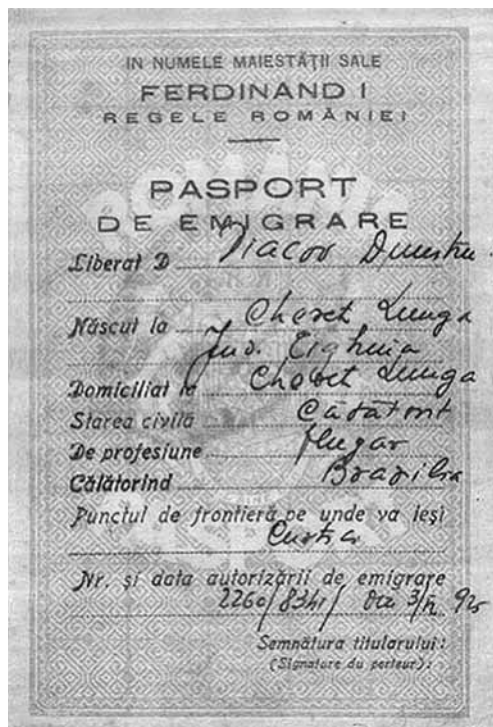 IN NUMELE MAIESTĂȚII SALE
FERDINAND I
REGELE ROMÂNIEI
PASPORT
DE EMIGRARE
Liberat D Diacov Dumitru
Născut la Choset Lunga
Jud. Tighina
Domiciliat la Choset Lunga
Starea civilă Căsătorit
De profesiune Plugar
Călătorind Brazilia
Punctul de frontieră pe unde va ieși
Curtici
Nr. și data autorizării de emigrare
2260/8341/ din 3/IX 925
Semnătura titularului:
(Signature du porteur):